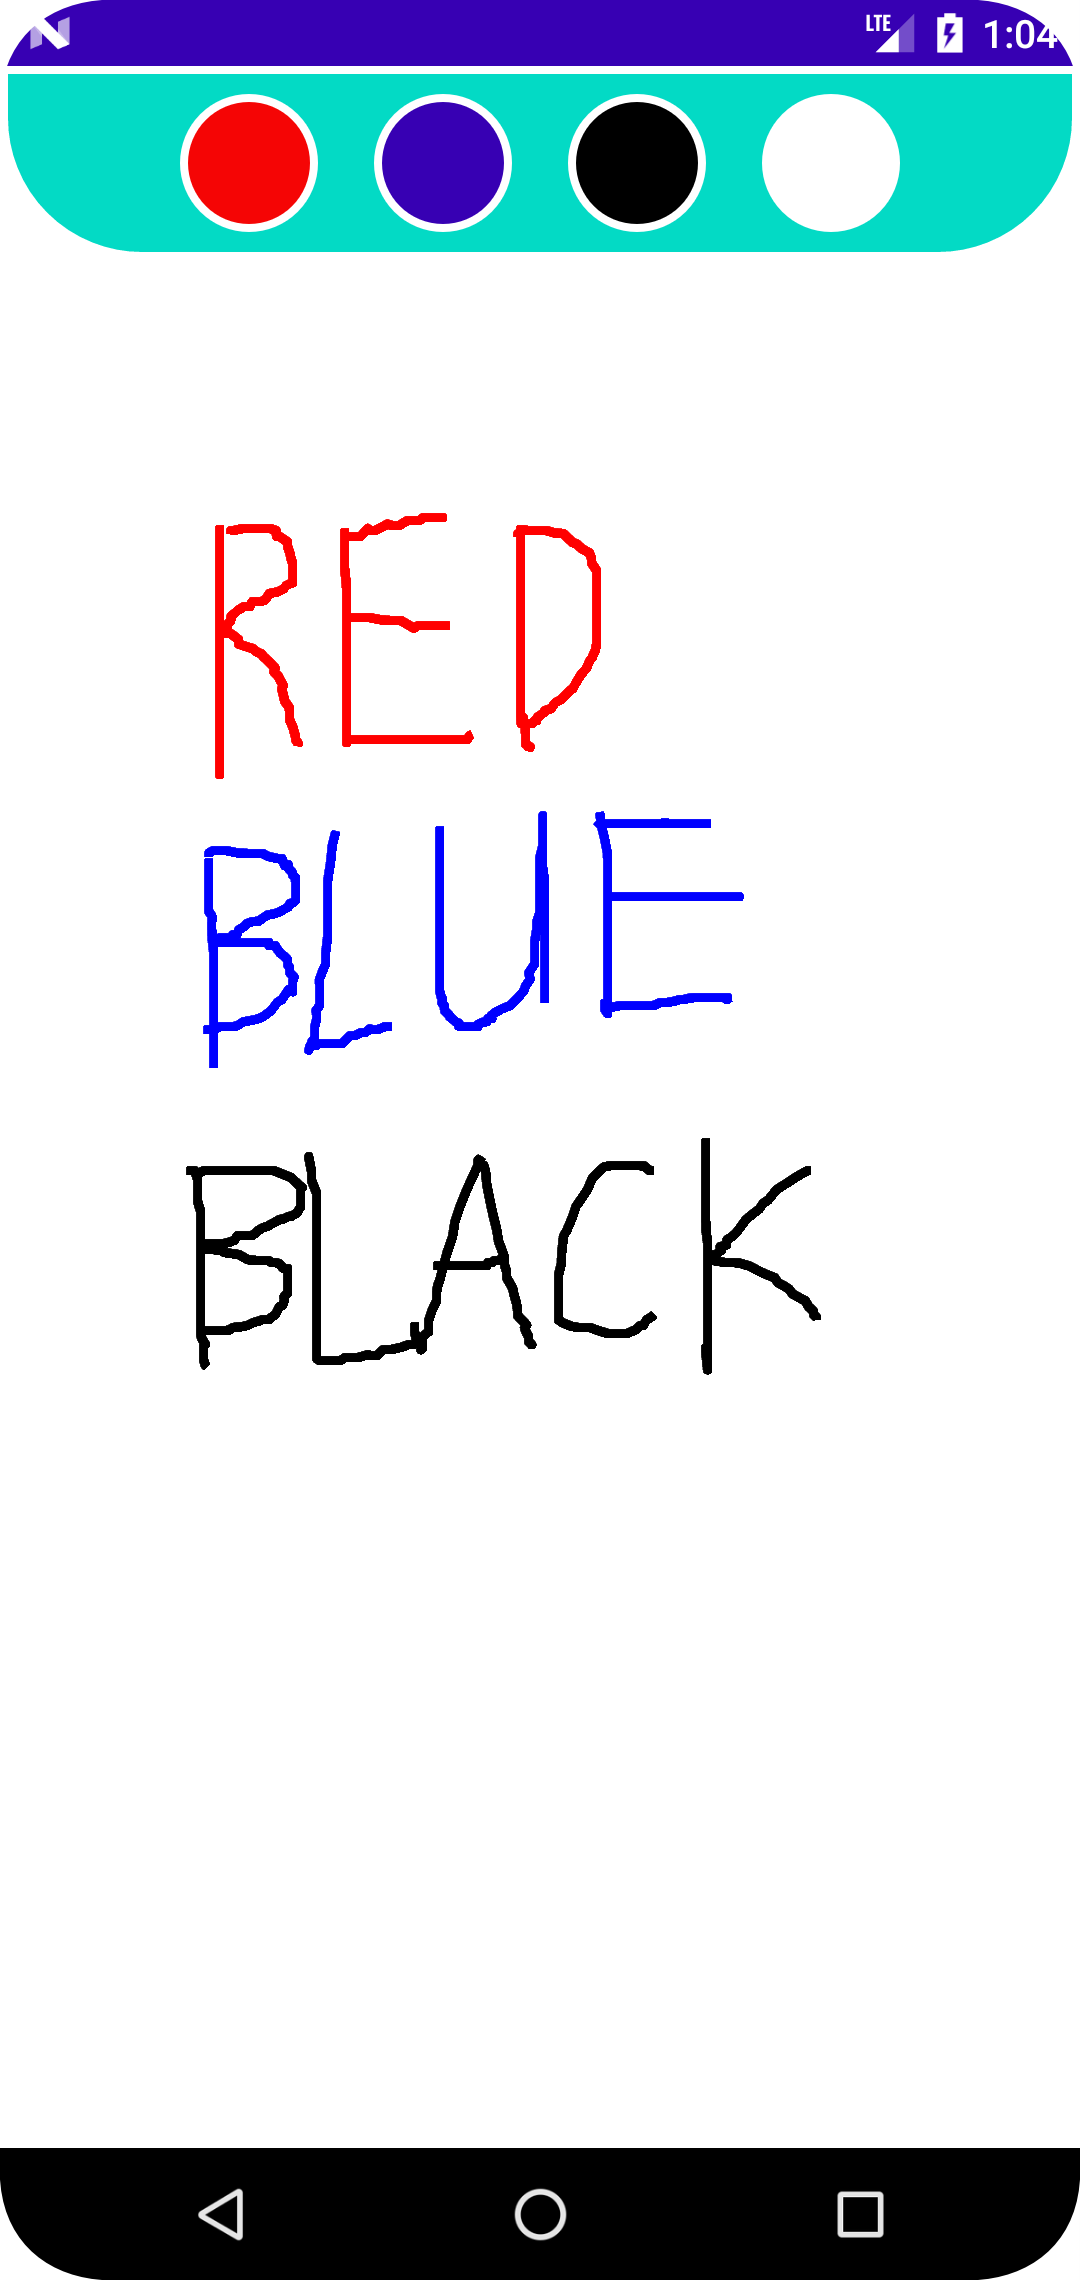 LTE 1:04
RED
BLUE
BLACK